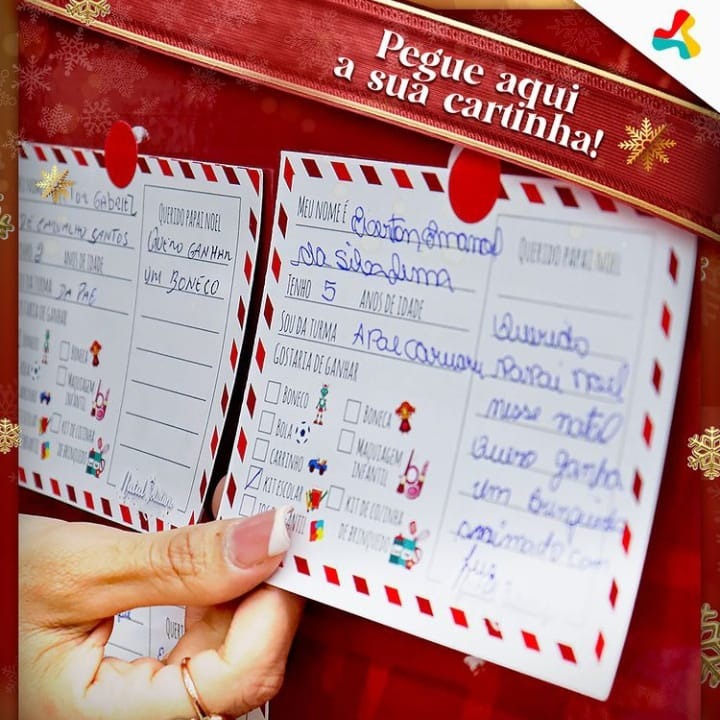 Pegue aqui
a sua cartinha!
GABRIEL
DE CARVALHO SANTOS
ANOS DE IDADE
DA TURMA DA PAE
DE GANHAR
BONECA
MAQUIAGEM
INFANTIL
KIT DE COZINHA
QUERIDO PAPAI NOEL
QUERO GANHAR
UM BONECO
MEU NOME É
da Silva Lima
TENHO 5 ANOS DE IDADE
SOU DA TURMA APAE Caruaru
GOSTARIA DE GANHAR
BONECO
BOLA
CARRINHO
KIT ESCOLAR
BONECA
MAQUIAGEM
INFANTIL
KIT DE COZINHA
DE BRINQUEDO
QUERIDO PAPAI NOEL
Querido
Papai Noel
nesse natal
Quero ganha
um brinquedo
animado com
luz